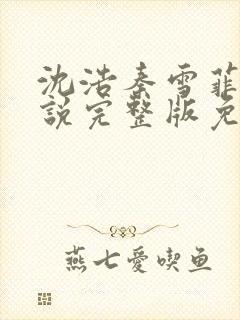 沈浩秦雪菲
說完整版免
燕七愛喫鱼